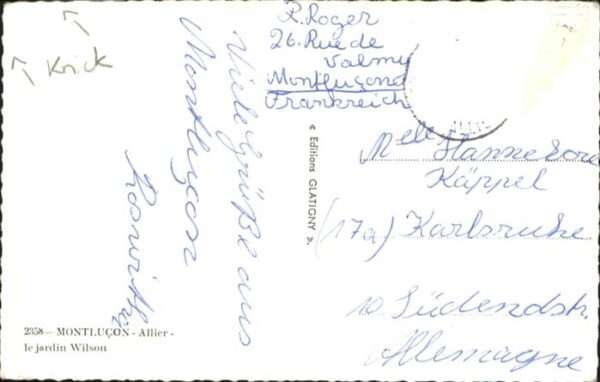 Knick
R. Roger
26. Rue de
Valmy
Montluçon
Frankreich
Viele Grüße aus
Montluçon
Roswitha
« Editions GLATIGNY ».
Melle Hannelore
Käppel
(17a) Karlsruhe
10 Südendstr.
Allemagne
2358 — MONTLUÇON - Allier -
le jardin Wilson